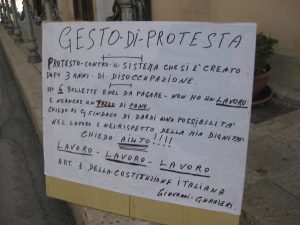 GESTO-DI-PROTESTA
PROTESTO-CONTRO-IL SISTEMA CHE SI È CREATO
DOPO 3 ANNI-DI-DISOCCUPAZIONE.
HO 6 BOLLETTE ENEL DA PAGARE-NON HO UN LAVORO
E NEANCHE UN PEZZO DI PANE.
CHIEDO AL SINDACO DI DARMI UNA POSSIBILITA'
NEL LAVORO E NEL RISPETTO DELLA MIA DIGNITA'
CHIEDO AIUTO!!!!
LAVORO-LAVORO-LAVORO
ART. 1 DELLA COSTITUZIONE ITALIANA
GIOVANNI-